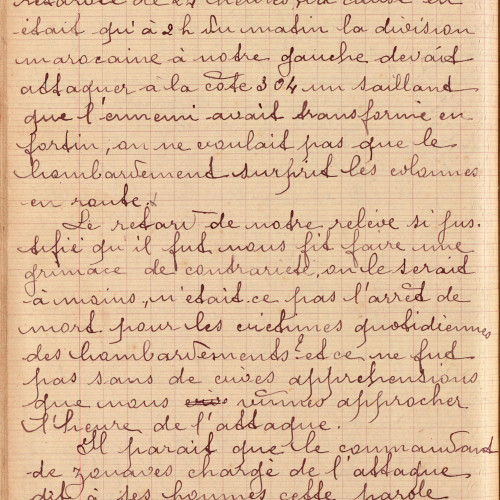 retardée de 24 heures, la cause en
était qu'à 2h du matin la division
marocaine à notre gauche devait
attaquer à la côte 304 un saillant
que l'ennemi avait transformé en
fortin, on ne voulait pas que le
bombardement surprit les colonnes
en route.
Le retard de notre relève si jus-
tifié qu'il fut nous fit faire une
grimace de contrariété, on le serait
à moins, n'était-ce pas l'arrêt de
mort pour les victimes quotidiennes
des bombardements? et ce ne fut
pas sans de vives appréhensions
que nous vîmes approcher
l'heure de l'attaque.
Il parait que le commandant
de zouaves chargé de l'attaque
dit à ses hommes cette parole